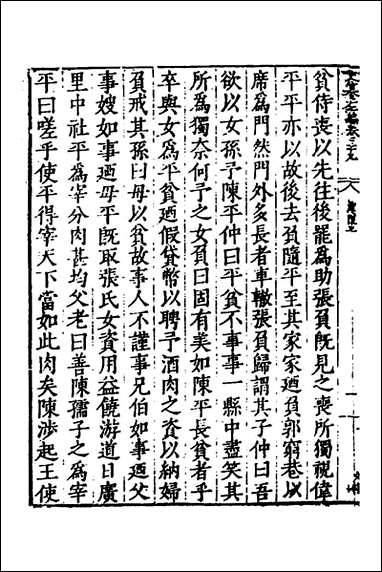 貧侍喪以先往後罷爲助張負旣見之喪所獨視偉
平平亦以故後去負隨平至其家家迺負郭窮巷以
席爲門然門外多長者車轍張負歸謂其子仲曰吾
欲以女孫予陳平仲曰平貧不事事一縣中盡笑其
所爲獨奈何予之女負曰固有美如陳平長貧者乎
卒與女爲平貧迺假貸幣以聘予酒肉之資以納婦
負戒其孫曰毋以貧故事人不謹事兄伯如事迺父
事嫂如事迺母平旣取張氏女資用益饒游道日廣
里中社平爲宰分肉甚均父老曰善陳孺子之爲宰
平曰嗟乎使平得宰天下當如此肉矣陳涉起王使